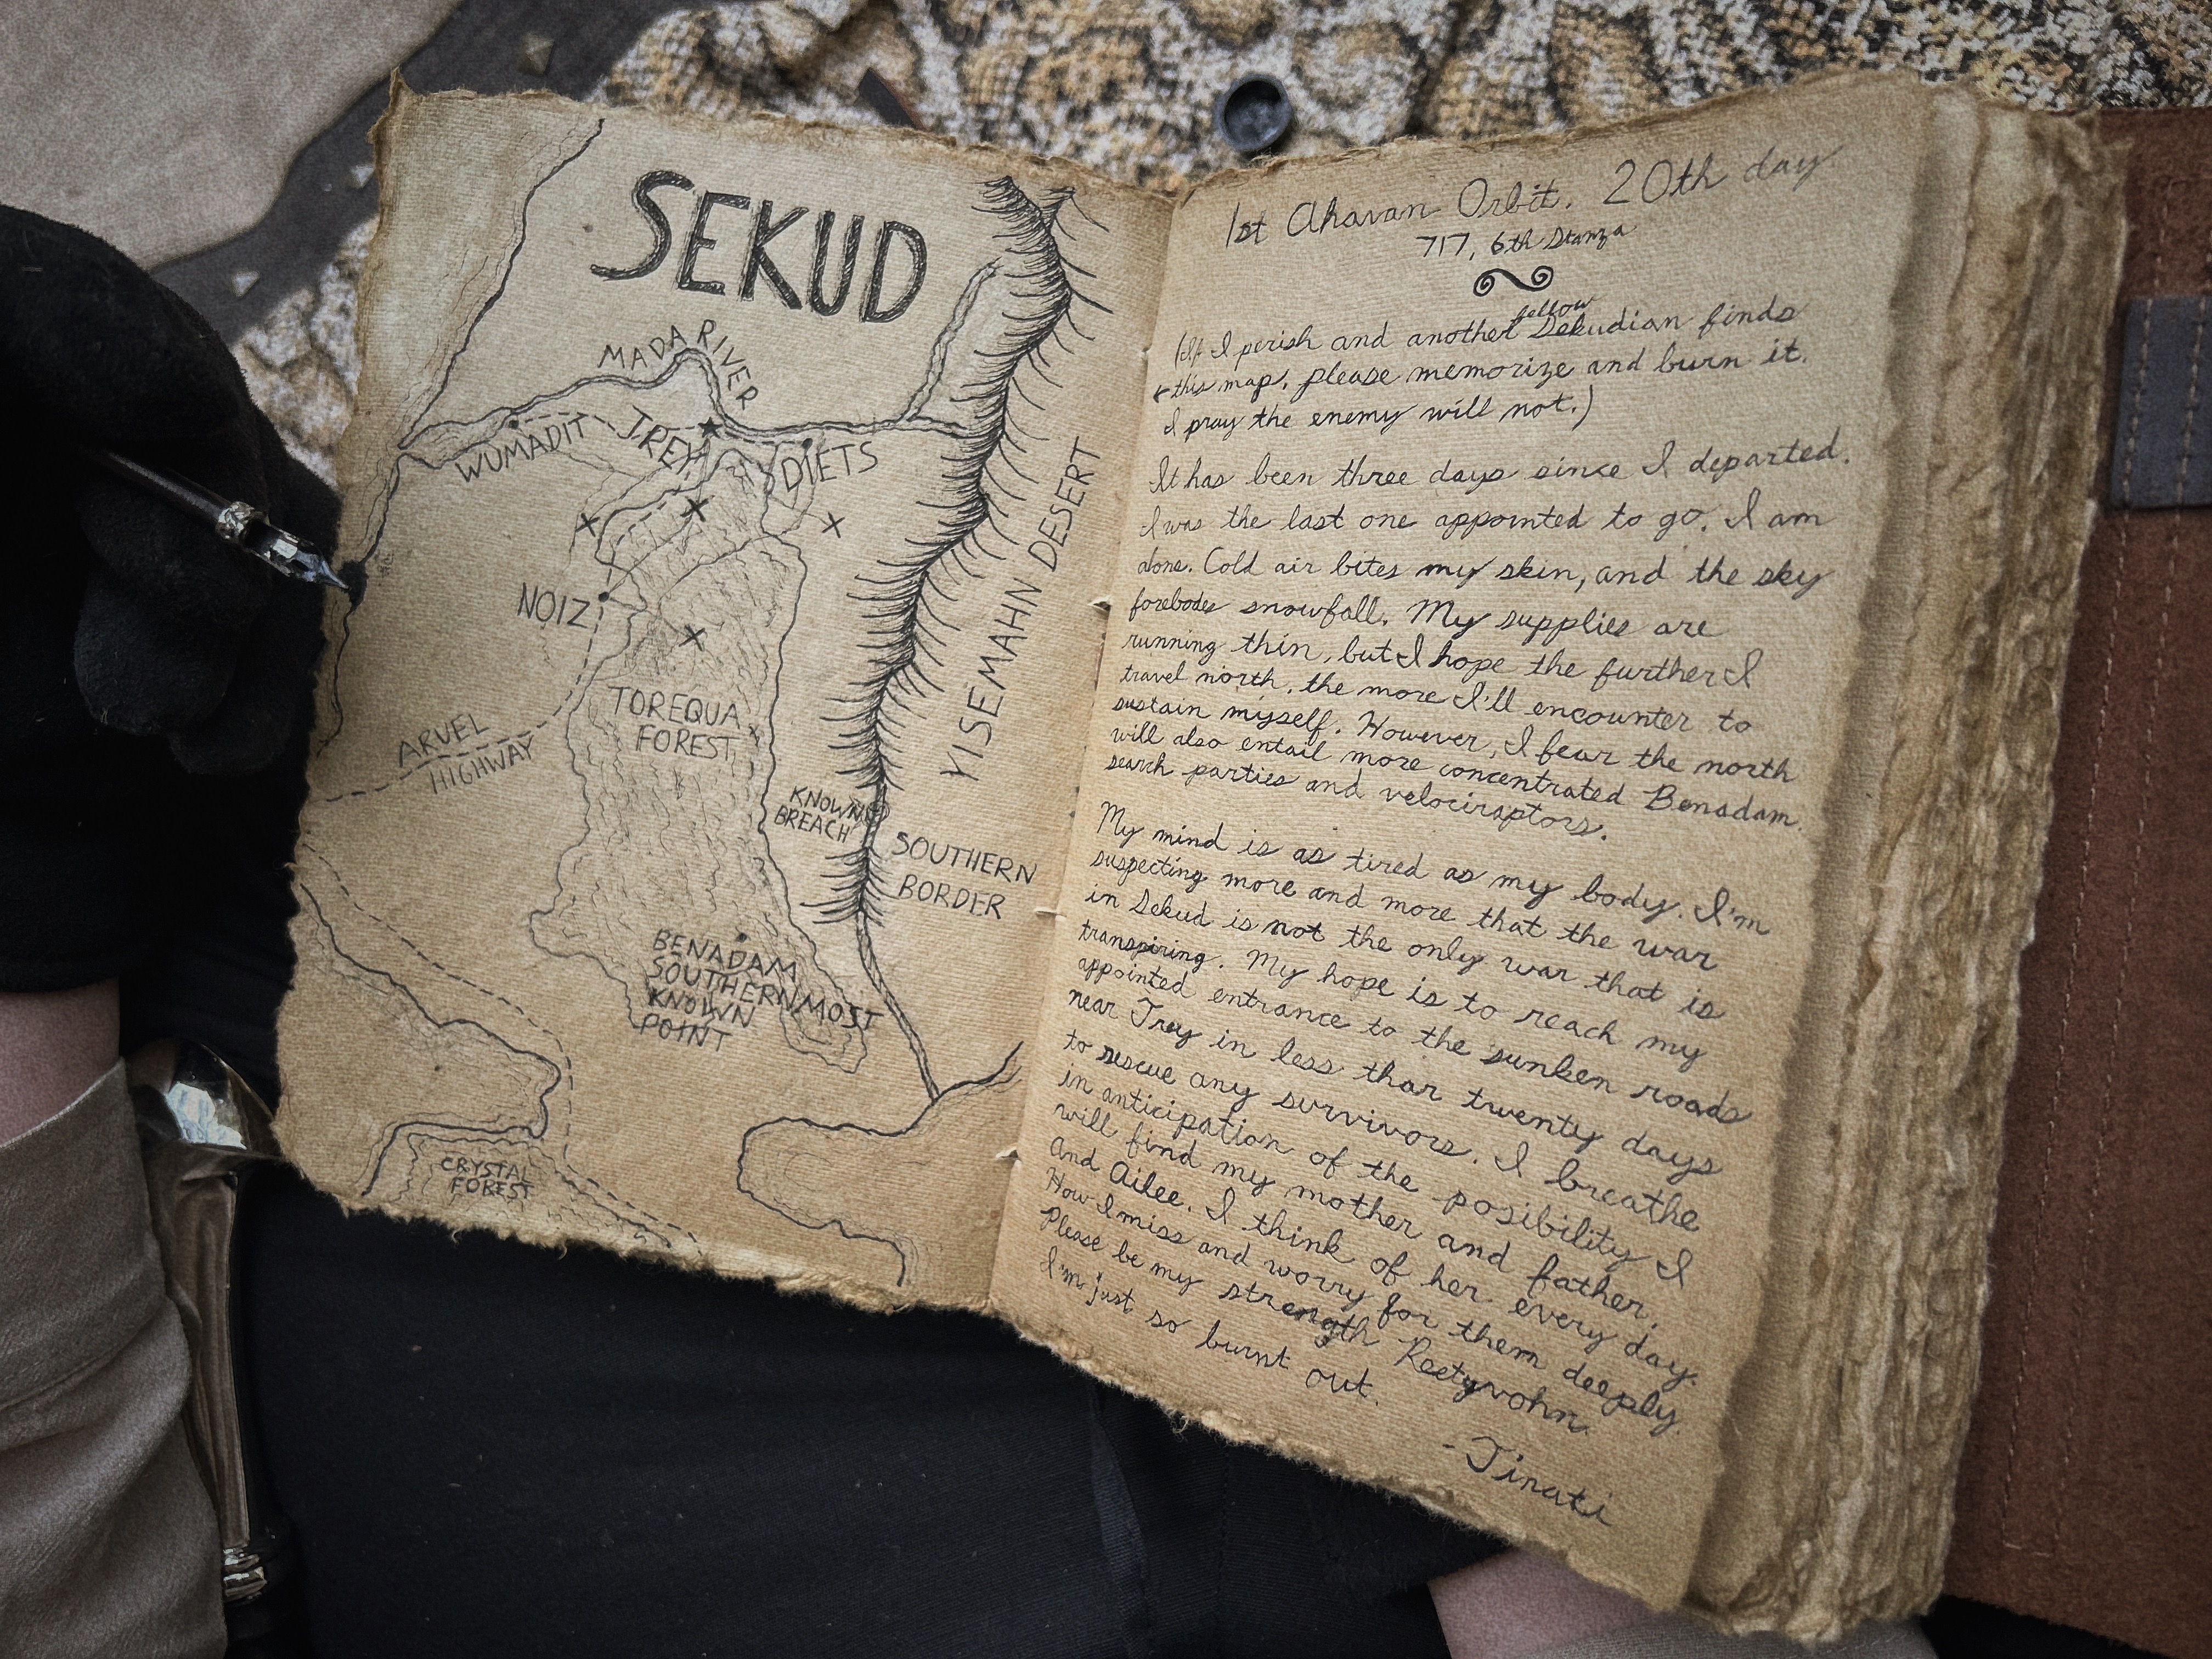 SEKUD
MADA RIVER
WUMADIT
TREY
DIETS
NOIZ
YISEMAHN DESERT
TOREQUA
FOREST
ARVEL
HIGHWAY
KNOWN
BREACH
SOUTHERN
BORDER
BENADAM
SOUTHERNMOST
KNOWN
POINT
CRYSTAL
FOREST
1st Ahavan Orbit, 20th day
717, 6th Stanza
fellow
(If I perish and another Sekudian finds
this map, please memorize and burn it.
I pray the enemy will not.)
It has been three days since I departed.
I was the last one appointed to go. I am
alone. Cold air bites my skin, and the sky
forebodes snowfall. My supplies are
running thin, but I hope the further I
travel north, the more I'll encounter to
sustain myself. However, I fear the north
will also entail more concentrated Benadam
search parties and velociraptors.
My mind is as tired as my body. I'm
suspecting more and more that the war
in Sekud is not the only war that is
transpiring. My hope is to reach my
appointed entrance to the sunken roads
near Trey in less than twenty days
to rescue any survivors. I breathe
in anticipation of the posibility I
will find my mother and father.
And Ailee. I think of her every day.
How I miss and worry for them deeply.
Please be my strength Reetyvohn.
I'm just so burnt out.
-Jinati